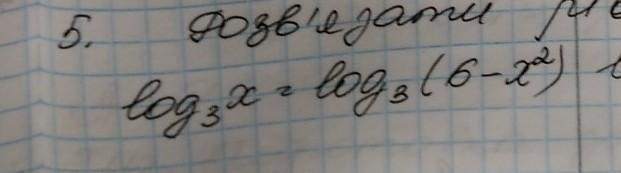 5. Розв'язати рів
log₃x = log₃(6-x²)